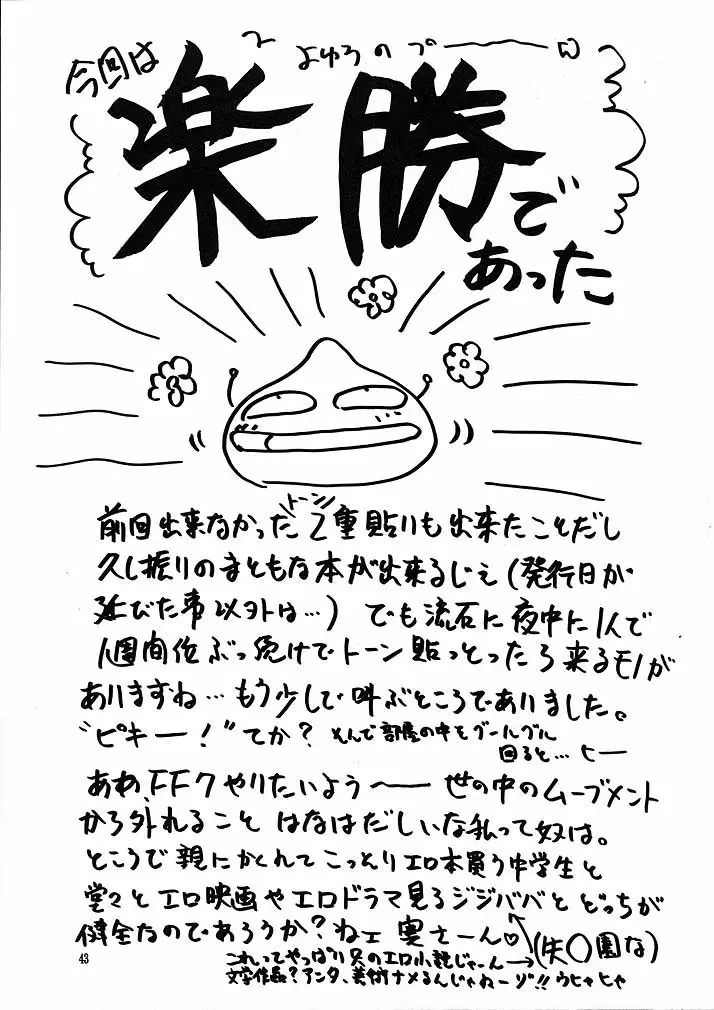 今回は
よゆうのプーーーw
楽勝で
あった
トーン
前回出来なかった2重貼りも出来たことだし
久し振りのまともな本が出来るじぇ(発行日が
延びた事以外は…)でも流石に夜中に1人で
1週間位ぶっ続けでトーン貼っとったら来るモノが
ありますね…もう少しで叫ぶところでありました。
"ピキー!"てか?そんで部屋の中をグールグル
回ると…ヒー
ああ、FF7やりたいよう〜ー世の中のムーブメント
から外れること はなはだしいな私って奴は。
ところで親にかくれてこっとりエロ本買う中学生と
堂々とエロ映画やエロドラマ見るジジババとどっちが
健全なのであろうか?ねェ奥さーん♡
(失〇園な)
これってやっぱり只のエロ小説じゃーん→
文学作品?アンタ、美術ナメるんじゃねーゾ!!ウヒャヒャ
43